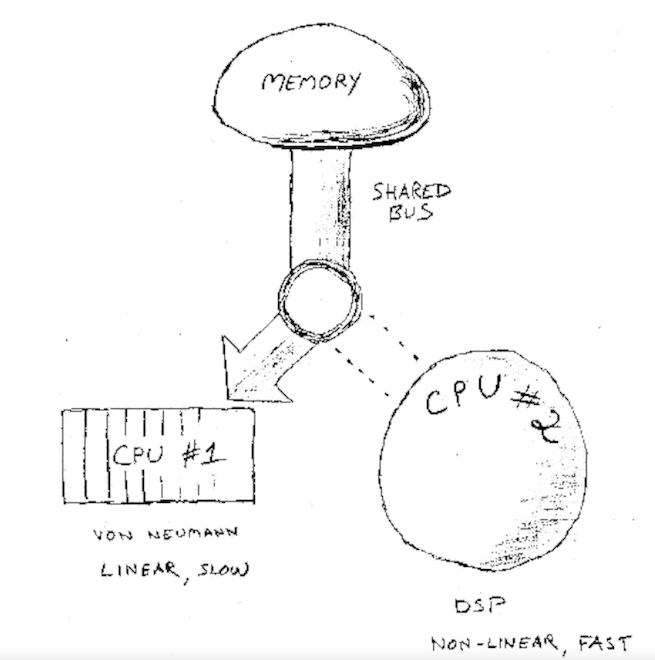 MEMORY
SHARED
BUS
CPU #1
VON NEUMANN
LINEAR, SLOW
CPU #2
DSP
NON-LINEAR, FAST